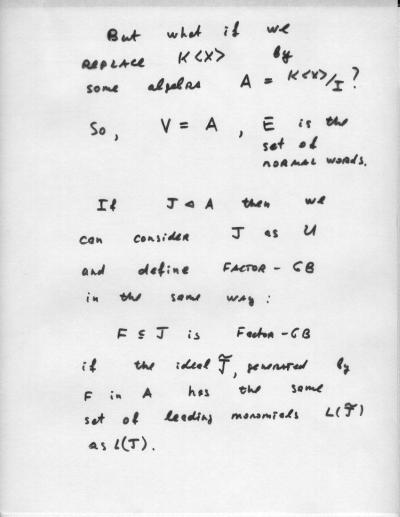 But what if we
REPLACE K<X> by
some algebra A = K<X>/I ?
So, V = A , E is the
set of
NORMAL WORDS.
If J ◁ A then we
can consider J as U
and define FACTOR - GB
in the same way :
F ⊆ J is Factor - GB
if the ideal J̃, generated by
F in A has the same
set of leading monomials L(J̃)
as L(J).